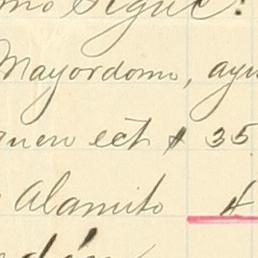 mo Sigue:
Mayordomo, ayu
quen ect $ 35
Alamito $